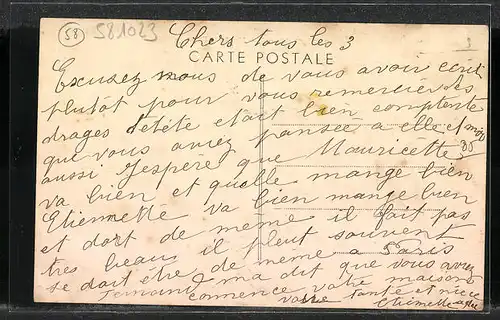 58
581023
3
Chers tous les 3
CARTE POSTALE
Excusez nous de vous avoir ecrit
plutôt pour vous remercier des
drages detété etait bien comptente
que vous aviez pansee a elle et moi
aussi Jespère que Mauricette
va bien et quelle mange bien
Etiennette va bien mange bien
et dort de meme il fait pas
tres beau il pleut souvent
se doit étre de meme a Paris
ma dit que vous avez
commence votre maison
votre tante et niece
Etiennette